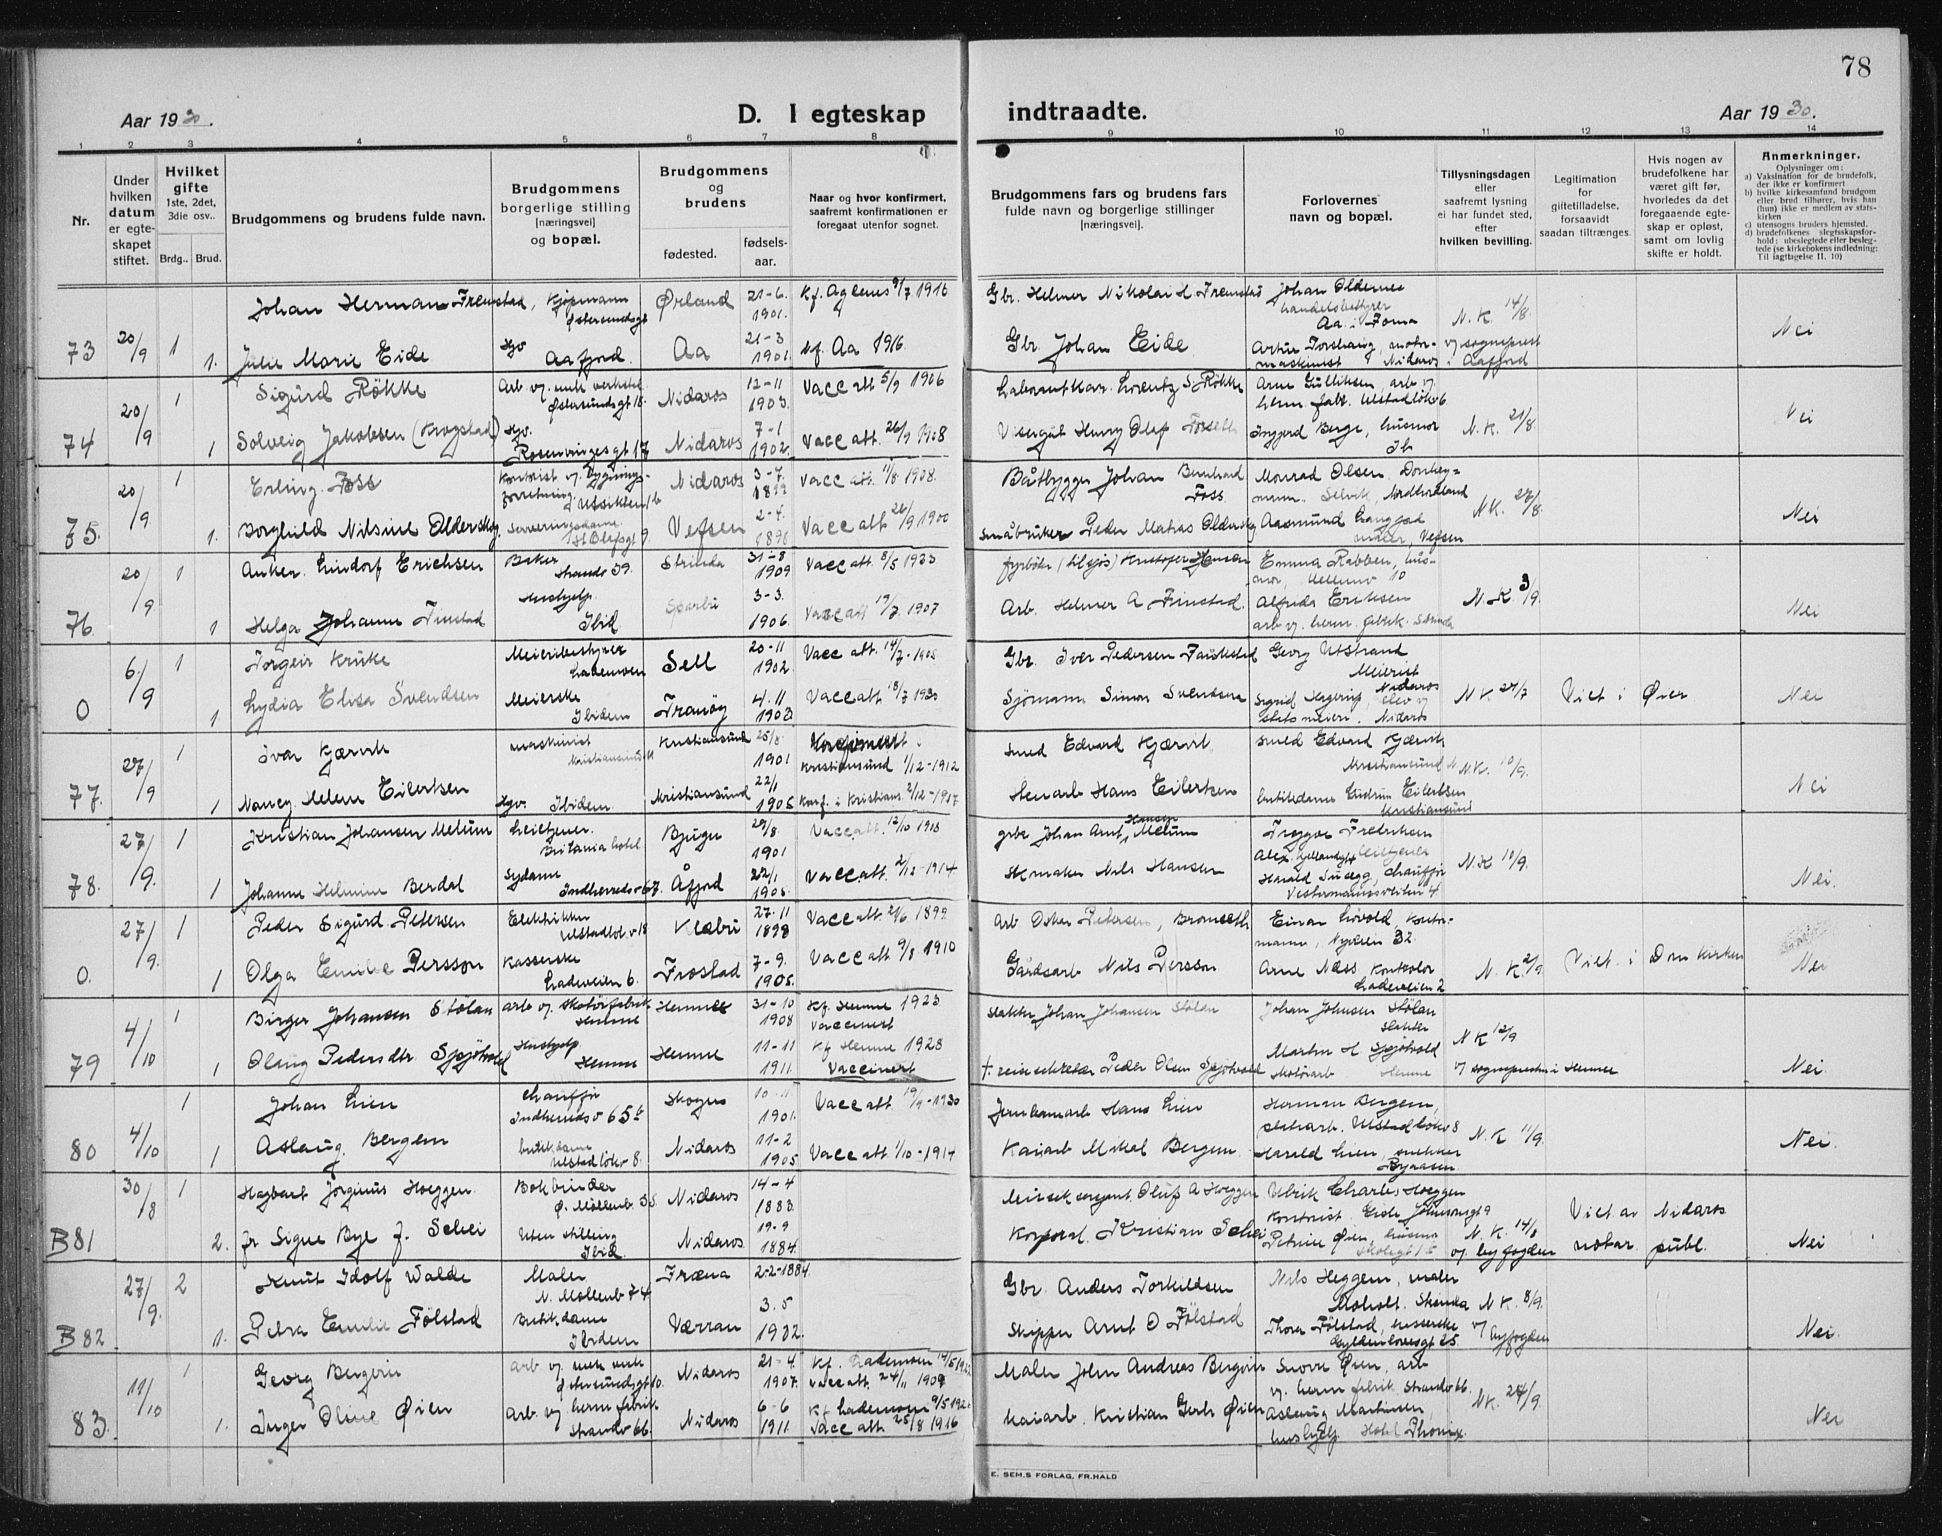 78
Aar 1930. D. I egteskap indtraadte. Aar 1930.
1 2 3 4 5 6 7 8 9 10 11 12 13 14
Nr.
Under hvilken datum er egteskapet stiftet.
Hvilket gifte 1ste, 2det, 3die osv..
Brdg.. Brud.
Brudgommens og brudens fulde navn.
Brudgommens borgerlige stilling [næringsvei] og bopæl.
Brudgommens og brudens
fødested. fødselsaar.
Naar og hvor konfirmert, saafremt konfirmationen er foregaat utenfor sognet.
Brudgommens fars og brudens fars fulde navn og borgerlige stillinger [næringsvei].
Forlovernes navn og bopæl.
Tillysningsdagen eller saafremt lysning ei har fundet sted, efter hvilken bevilling.
Legitimation for giftetilladelse, forsaavidt saadan tiltrænges.
Hvis nogen av brudefolkene har været gift før, hvorledes da det foregaaende egteskap er opløst, samt om lovlig skifte er holdt.
Anmerkninger.
Oplysninger om:
a) Vaksination for de brudefolk, der ikke er konfirmert
b) hvilke kirkesamfund brudgom eller brud tilhører, hvis han (hun) ikke er medlem av statskirken
c) utensogns bruders hjemsted.
d) brudefolkenes slegtsskapsforhold: ubeslegtede eller beslegtede (se kirkebokens indledning: Til iagttagelse II. 10)
73 20/9 1 Johan Herman Fremstad, Kjøpmann Østersundsgt Ørland 21-6. 1901. Kf. Agdenes 9/7 1916 Gbr. Helmer Nikolai H Fremstad Johan Oldernes handelsbestyrer N.K. 14/8. Nei
1. Julie Marie Eide Hgv Aafjord. Aa 21-3 1901. kf. Aa 1916. Gbr. Johan Eide maskinist Nidaros og sogneprest i Aafjord
74 20/9 1 Sigurd Røkke Østersundsgt 18. Nidaros 12-11 1903. Vacc att 5/9 1906 Arne Gulliksen, arb v. N.K. 21/8. Nei
1 Solveig Jakobsen (Krogstad) Hgv. Rosenvingesgt 17 Nidaros 7-1 1902. Vacc att. 26/9 1908 Visergut Henry Olaf Ingjerd Berge, husmor Ib
75. 20/9. 1 Erling Foss Nidaros 3-7. 1899 Vacc att. 11/8 1908. Båtbygger Johan Bernhard Foss Monrad Olsen N.K. 27/8. Nei
1. Borghild Nilsine Olderskog. Serveringsdame. Vefsen 2-4. 1898 Vacc att 26/9 1900 Småbruker Peder Matias Olderskog Aasmund Langgad maler, Vefsen
76. 20/9 1 Anker Lindorf Erichsen Baker Strandv 39. Strinda 31-8 1909 Vacc att. 8/5 1923 Emma Rabben, husmor, N.K 3/9. Nei
1 Helga Johanne Finstad Hushjelp. Ibid. Sparbu 3-3. 1906. Vacc att 19/7 1907 Arb. Helmer A Finstad. Alfrida Eriksen arb v. herm. fabrik. Strinda
0 6/9 1 Torgeir Kruke Meieribestyrer Lademoen Sell 20-11 1902. Vacc att. 14/7-1905 Gbr. Iver Pedersen Faukstad Georg Utstrand Meierist Nidaros N.K 27/7 Viet i Øier Nei
1 Lydia Elisa Svendsen Meierske Ibidem Tranøy 4.11 1903. Vacc att 18/7 1930 Sjømann Simon Svendsen Sigrid Hagerup, elev v statsmeieri. Nidaros
77. 27/9 1 Ivar Kjærvik maskinist Kristiansund Kristiansund 25/8. 1901 Konfirmert i Kristiansund 1/12-1912 Smed Edvard Kjærvik. Smed Edvard Kjærvik Kristiansund N N.K. 10/9. Nei
1 Nancy Helene Eilertsen Hgv. Ibidem. Kristiansund 22/1 1905 Konf. i Kristians. 2/12-1917 Hans Eilertsen butikdame Gudrun Eilertsen Kristiansund
78. 27/9. 1 Kristian Johansen Melum Britania hotel Bjugn 29/8. 1901 Vacc att. 12/10 1915 gbr. Johan Arnt Hansen Melum Trygve Fredriksen N.K 10/9. Nei.
1 Johanne Helmine Berdal Sydame Indherredsv 67. Åfjord 22/1 1905. Vacc. att. 2/12-1914 Skomaker Nils Hansen Harald Chauffør Vestermannsveiten 4
0. 27/9. 1 Peder Sigurd Petersen Elektriker Ulstadløkv 18 Klæbu 27-11 1898 Vacc att. 2/6 1899 Arb Oskar Petersen, Bromseth Einar Løvold, kontormann, Nygaten 32. N.K. 2/9. Viet. i Domkirken Nei
1 Olga Emilie Persson Kasserske Ladeveien 6. Frostad 7-9. 1905. Vacc att 9/8 1910 Gårdsarb Nils Persson Arne Næss, kontrolør Ladeveien 2
79 4/10 1 Birger Johansen Stølan arb v. skotøifabrik Hemne Hemne 31-10 1908 Kf. Hemne 1923 Vaccinert Slakter Johan Johansen Stølan Johan Johnsen Stølan slakter N.K 12/9 Nei.
1 Olaug Pedersdtr. Sjøtvold Hushjelp Hemne Hemne 11-11 1911. Kf Hemne 1928 Vaccinert Peder Olsen Sjøtvold Martin H Sjøtvold skotøiarb Hemne og sogneprest i Hemne
80 4/10 1 Johan Lien Chauffør Indherredsv 65 b Skogn 10-11 1901. Vacc att 19/9-1930 Jernbanearb Hans Lien Herman Bergem, Ulstadløkv 8 N.K 11/9. Nei.
1 Aslaug. Bergem butikdame Ulstadløkv 8. Nidaros 11-2 1905 Vacc att 1/10-1914 Kaiarb Mikal Bergem. Harald Lien, snekker Byaasen
B81 30/8 1 Hagbart Jørginus Hoeggen. Bokbinder Ø. Møllenb 35. Nidaros 14-4 1883. Musik sergeant. Oluf A Hoeggen Ulrik Charles Hoeggen Kontorist. N.K. 14/8 og byfogden Viet av Nidaros notar publ. Nei
2. fr Signe Bye f. Schei Uten stilling Ibid. Nidaros. 19-9 1884. Korporal. Kristian Schei Petrine Øien, husmor
B82 27/9. 2 Knut Idolf Walde Maler N. Møllenb 74 Fræna 2-2-1884. Gbr. Anders Torkildsen Nils Heggem, maler Moholt. Strinda N.K. 8/9. og byfogden Nei.
1. Petra Emilie Følstad Butikdame Ibidem Værran 3.5 1902. Skipper Arnt O Følstad Thora Følstad, kasserske Gyldenløvesgt 25.
83. 11/10 1 Georg Bergvin Østersundsgt 10. Nidaros 21-4. 1907. Kf. Lademoen 14/5 1922 Vacc att. 24/11 1909 Maler John Andreas Bergvin Snorre Øien, arb v. herm. fabrik. Strandv 66. N.K. 24/9. Nei
1. Inger Oline Øien Arb. v herm. fabrik Strandv 66. Nidaros 6-6 1911. Kf Lademoen 9/5 192 Vacc att 25/8 1916 Kaiarb. Kristian Gerh Øien Aslaug Martinsen, hushjelp. Hotel Phønix.
E. SEM.S FORLAG, FR.HALD